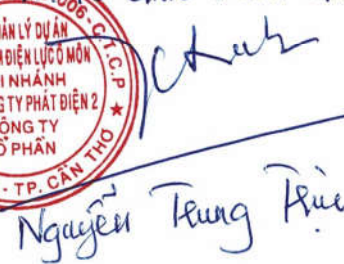 006-C.T.C.P
ẢN LÝ DỰ ÁN
ĐIỆN LỰC Ô MÔN
I NHÁNH
G TY PHÁT ĐIỆN 2
ÔNG TY
Ổ PHẦN
- TP. CẦN THƠ ★
Nguyễn Trung